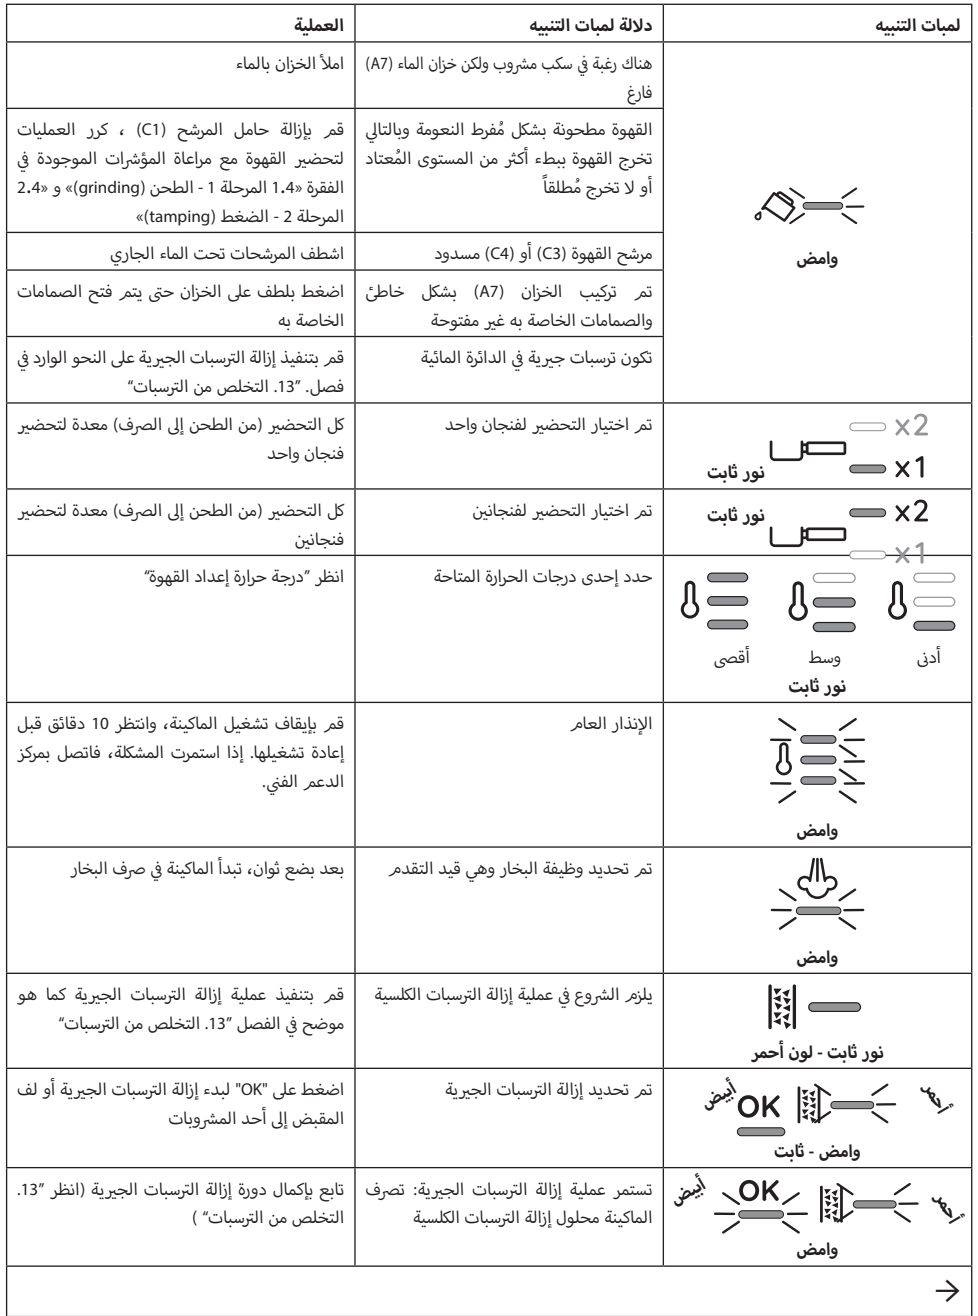 لمبات التنبيه
دلالة لمبات التنبيه
العملية
وامض
هناك رغبة في سكب مشروب ولكن خزان الماء (A7)
فارغ
املأ الخزان بالماء
القهوة مطحونة بشكل مُفرط النعومة وبالتالي
تخرج القهوة ببطء أكثر من المستوى المُعتاد
أو لا تخرج مُطلقاً
قم بإزالة حامل المرشح (C1) ، كرر العمليات
لتحضير القهوة مع مراعاة المؤشرات الموجودة في
الفقرة «1.4 المرحلة 1 - الطحن (grinding)» و «2.4
المرحلة 2 - الضغط (tamping)»
مرشح القهوة (C3) أو (C4) مسدود
اشطف المرشحات تحت الماء الجاري
تم تركيب الخزان (A7) بشكل خاطئ
والصمامات الخاصة به غير مفتوحة
اضغط بلطف على الخزان حتى يتم فتح الصمامات
الخاصة به
تكون ترسبات جيرية في الدائرة المائية
قم بتنفيذ إزالة الترسبات الجيرية على النحو الوارد في
فصل. ”13. التخلص من الترسبات“
x2
x1
نور ثابت
تم اختيار التحضير لفنجان واحد
كل التحضير (من الطحن إلى الصرف) معدة لتحضير
فنجان واحد
x2
نور ثابت
x1
تم اختيار التحضير لفنجانين
كل التحضير (من الطحن إلى الصرف) معدة لتحضير
فنجانين
أدنى وسط أقصى
نور ثابت
حدد إحدى درجات الحرارة المتاحة
انظر ”درجة حرارة إعداد القهوة“
وامض
الإنذار العام
قم بإيقاف تشغيل الماكينة، وانتظر 10 دقائق قبل
إعادة تشغيلها. إذا استمرت المشكلة، فاتصل بمركز
الدعم الفني.
وامض
تم تحديد وظيفة البخار وهي قيد التقدم
بعد بضع ثوان، تبدأ الماكينة في صرف البخار
نور ثابت - لون أحمر
يلزم الشروع في عملية إزالة الترسبات الكلسية
قم بتنفيذ عملية إزالة الترسبات الجيرية كما هو
موضح في الفصل ”13. التخلص من الترسبات“
أحمر
أبيض
OK
وامض - ثابت
تم تحديد إزالة الترسبات الجيرية
اضغط على "OK" لبدء إزالة الترسبات الجيرية أو لف
المقبض إلى أحد المشروبات
أحمر
أبيض
OK
وامض
تستمر عملية إزالة الترسبات الجيرية: تصرف
الماكينة محلول إزالة الترسبات الكلسية
تابع بإكمال دورة إزالة الترسبات الجيرية (انظر ”13.
التخلص من الترسبات“ )
→